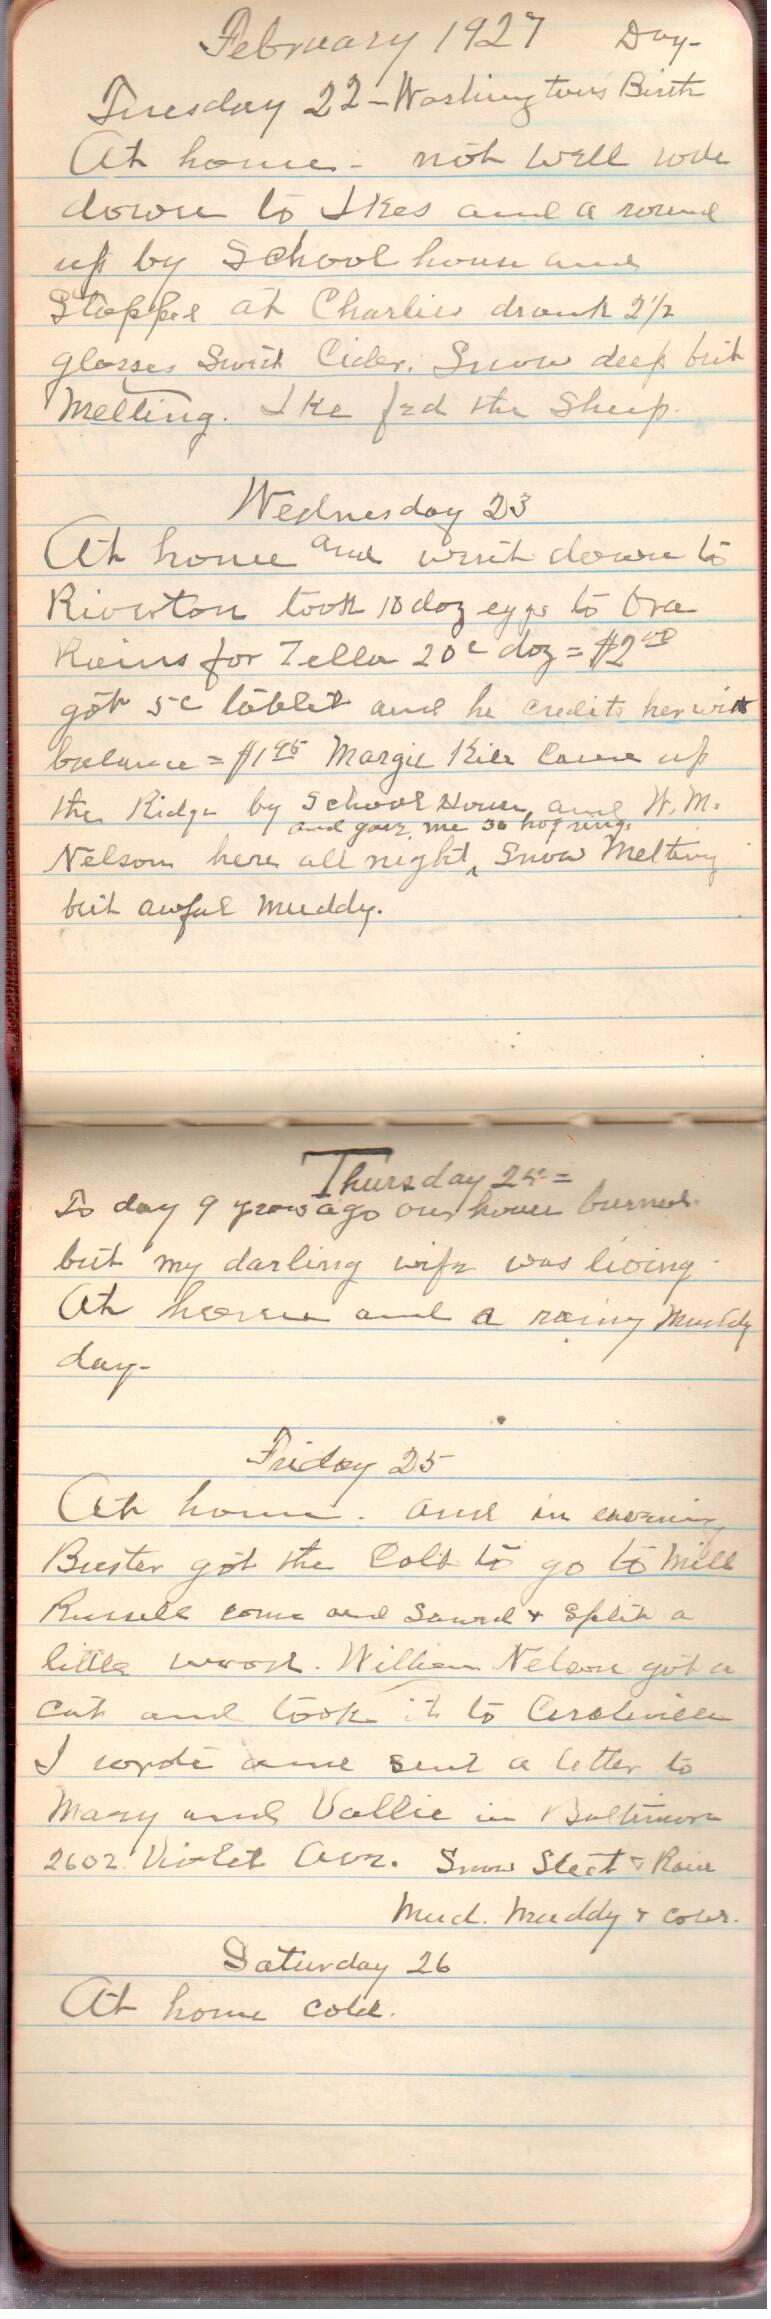 February 1927 Day-
Tuesday 22 - Washingtons Birth
At home - not well rode
down to Ikes and a round
up by School house and
Stopped at Charlies drank 2 1/2
glasses Sweet Cider. Snow deep but
Melting. Ike fed the Sheep.
Wednesday 23
At home and went down to
Riverton took 10 doz eggs to Ora
for Zella 20c doz = $2.00
got 5c tablet and he credits her with
balance = $1.95 Margie came up
the Ridge by School House and W.M.
and gave me 30 hog rings
Nelson here all night ^ Snow Melting
but awful muddy.
Thursday 24 =
To day 9 years ago our house burned
but my darling wife was living.
At home and a rainy Muddy
day-
Friday 25
At home. and in evening
Buster got the Colt to go to Mill
Russell come and Sawed & Split a
little wood. William Nelson got a
cat and took it to Circleville
I wrote and sent a letter to
Mary and Vallie in Baltimore
2602 Violet Ave. Snow Sleet & Rain
Mud. Muddy & cold.
Saturday 26
At home cold.